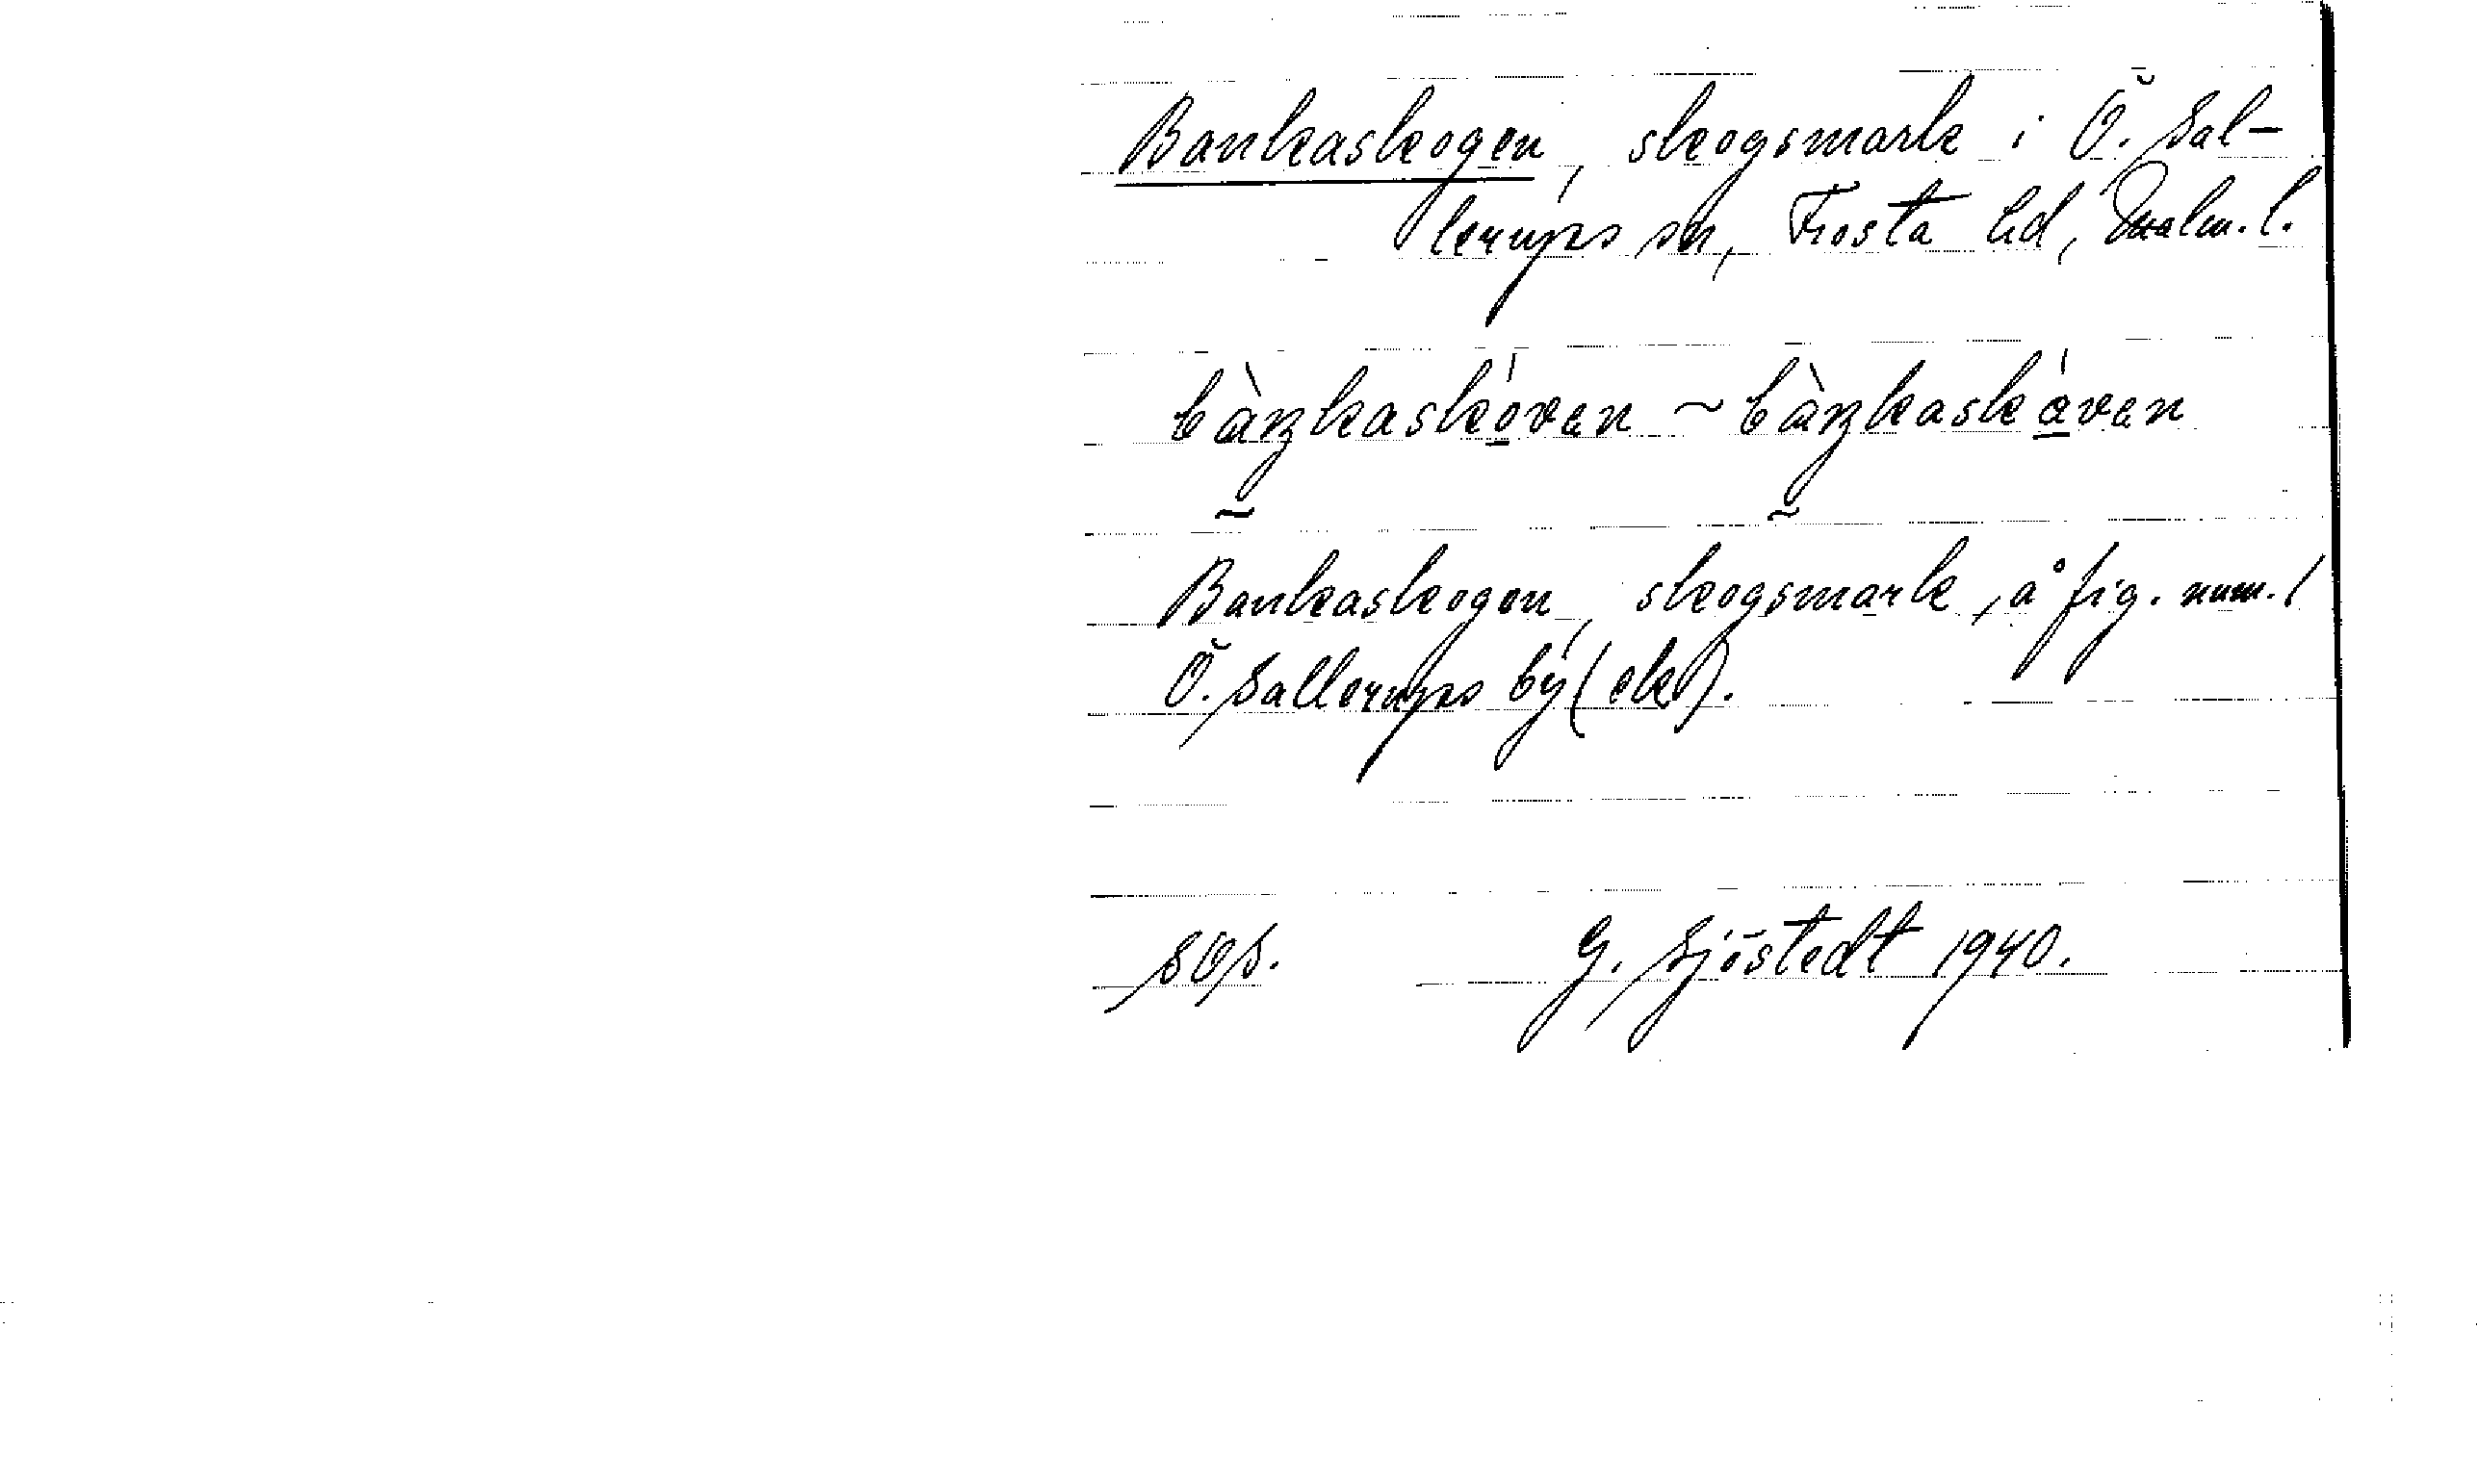 Bankaskogen, skogsmark i Ö. Sal-
lerups sn, Frosta hd, Malm. l.
bàŋkaskóvən ~ bàŋkaskávən
Bankaskogen, skogsmark, å fig. num. 1
Ö. Sallerups by (ek).
SOS. G. Sjöstedt 1940.